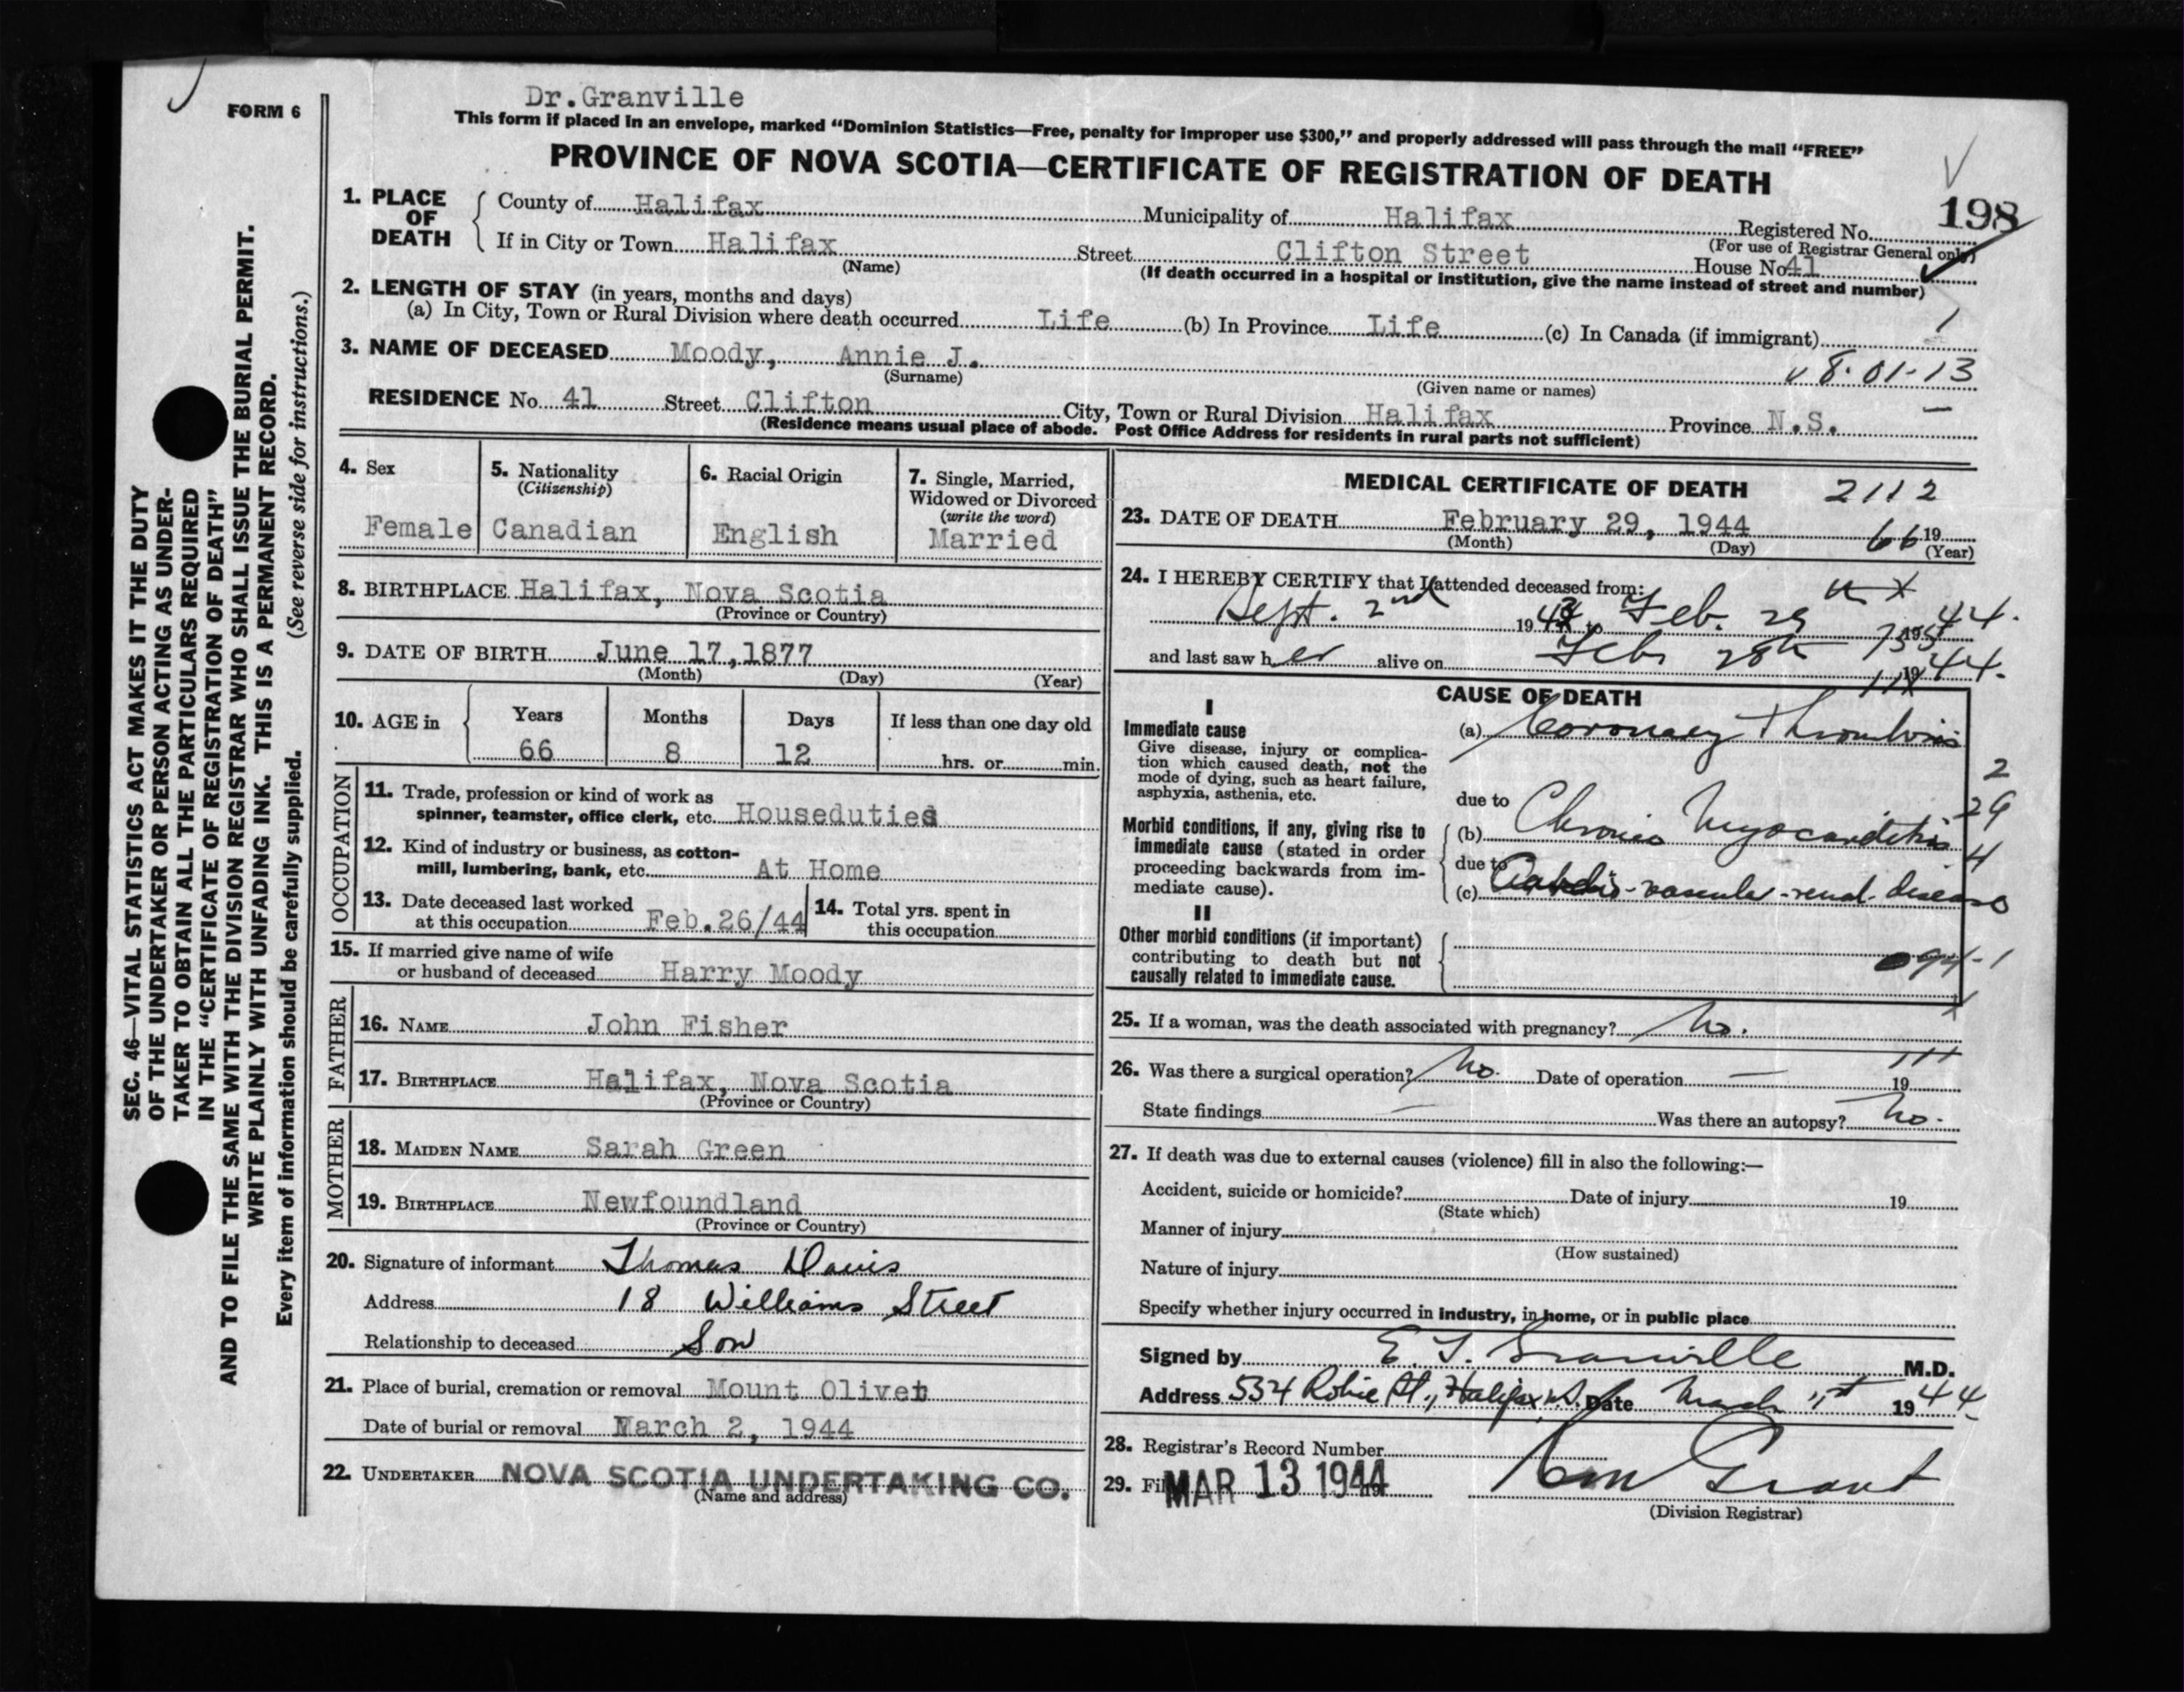 Dr.Granville
FORM 6
This form if placed in an envelope, marked “Dominion Statistics—Free, penalty for improper use $300,” and properly addressed will pass through the mail “FREE”
PROVINCE OF NOVA SCOTIA—CERTIFICATE OF REGISTRATION OF DEATH
1. PLACE OF DEATH
County of Halifax Municipality of Halifax Registered No. 198
(For use of Registrar General only)
If in City or Town Halifax Street Clifton Street House No 41
(Name)
(If death occurred in a hospital or institution, give the name instead of street and number)
2. LENGTH OF STAY (in years, months and days)
(a) In City, Town or Rural Division where death occurred Life (b) In Province Life (c) In Canada (if immigrant) 1
3. NAME OF DECEASED Moody, Annie J.
(Surname) (Given name or names)
8-01-13
RESIDENCE No. 41 Street Clifton City, Town or Rural Division Halifax Province N.S.
(Residence means usual place of abode. Post Office Address for residents in rural parts not sufficient)
4. Sex
Female
5. Nationality
(Citizenship)
Canadian
6. Racial Origin
English
7. Single, Married,
Widowed or Divorced
(write the word)
Married
8. BIRTHPLACE Halifax, Nova Scotia
(Province or Country)
9. DATE OF BIRTH June 17,1877
(Month) (Day) (Year)
10. AGE in
Years Months Days If less than one day old
66 8 12 hrs. or min.
OCCUPATION
11. Trade, profession or kind of work as
spinner, teamster, office clerk, etc. Houseduties
12. Kind of industry or business, as cotton-
mill, lumbering, bank, etc. At Home
13. Date deceased last worked
at this occupation Feb.26/44
14. Total yrs. spent in
this occupation
15. If married give name of wife
or husband of deceased Harry Moody
FATHER
16. NAME John Fisher
17. BIRTHPLACE Halifax, Nova Scotia
(Province or Country)
MOTHER
18. MAIDEN NAME Sarah Green
19. BIRTHPLACE Newfoundland
(Province or Country)
20. Signature of informant Thomas Davis
Address 18 Williams Street
Relationship to deceased Son
21. Place of burial, cremation or removal Mount Olivet
Date of burial or removal March 2, 1944
22. UNDERTAKER NOVA SCOTIA UNDERTAKING CO.
(Name and address)
MEDICAL CERTIFICATE OF DEATH 2112
23. DATE OF DEATH February 29, 1944 66 19
(Month) (Day) (Year)
24. I HEREBY CERTIFY that I attended deceased from:
Sept. 2nd 1943 to Feb. 29 1944.
and last saw her alive on Feb 28th 1944.
CAUSE OF DEATH
I
Immediate cause
Give disease, injury or complica-
tion which caused death, not the
mode of dying, such as heart failure,
asphyxia, asthenia, etc.
(a) Coronary Thrombosis
due to
Morbid conditions, if any, giving rise to
immediate cause (stated in order
proceeding backwards from im-
mediate cause).
(b) Chronic Myocarditis
due to
(c) Cardio-vascular-renal-disease
2
29
4
II
Other morbid conditions (if important)
contributing to death but not
causally related to immediate cause.
94-1
25. If a woman, was the death associated with pregnancy? No.
26. Was there a surgical operation? No. Date of operation — 19
State findings — Was there an autopsy? No.
27. If death was due to external causes (violence) fill in also the following:—
Accident, suicide or homicide? Date of injury 19
(State which)
Manner of injury
(How sustained)
Nature of injury
Specify whether injury occurred in industry, in home, or in public place
Signed by E. F. Granville M.D.
Address 534 Robie St., Halifax N.S. Date March 1st 1944
28. Registrar's Record Number
29. Fil MAR 13 1944
Grant
(Division Registrar)
SEC. 46—VITAL STATISTICS ACT MAKES IT THE DUTY
OF THE UNDERTAKER OR PERSON ACTING AS UNDER-
TAKER TO OBTAIN ALL THE PARTICULARS REQUIRED
IN THE “CERTIFICATE OF REGISTRATION OF DEATH”
AND TO FILE THE SAME WITH THE DIVISION REGISTRAR WHO SHALL ISSUE THE BURIAL PERMIT.
WRITE PLAINLY WITH UNFADING INK. THIS IS A PERMANENT RECORD.
Every item of information should be carefully supplied. (See reverse side for instructions.)